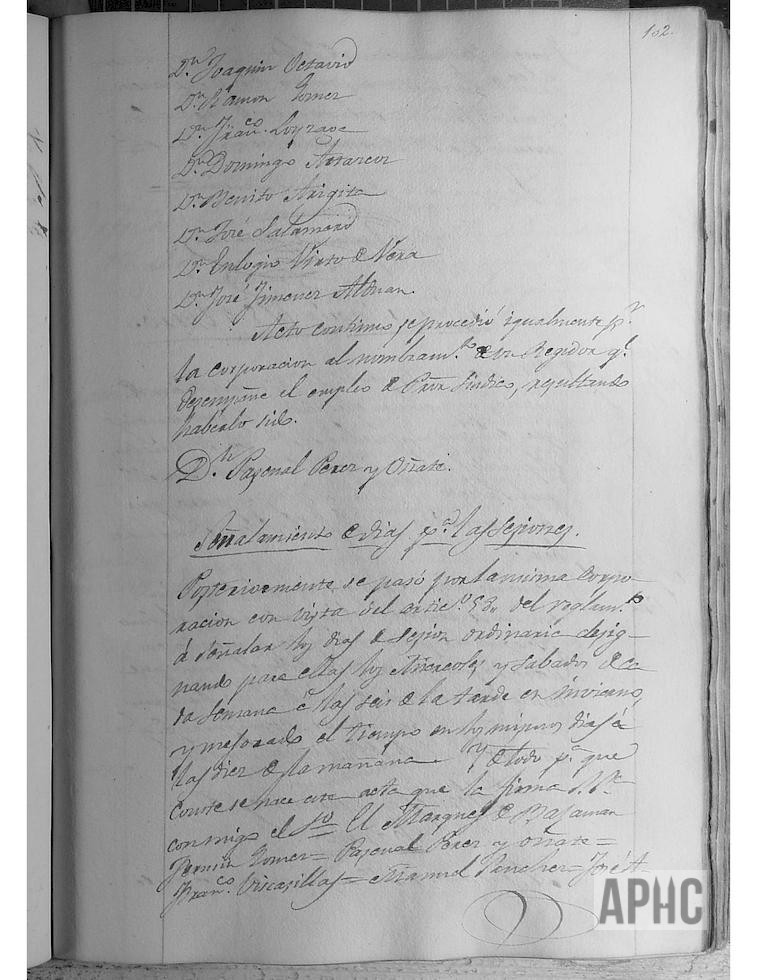 102.
Dn. Joaquin Octavio
Dn. Ramon Gomez
Dn. Franco. Loyzave
Dn. Domingo Azcarcor
Dn. Benito Arigita
Dn. José Salamero
Dn. Eulogio Virto de Vera
Dn. José Jimenez Alduan.
Acto continuo se procedió igualmente pr.
la corporacion al nombramto. de un Regidor qe.
desempeñe el empleo de Pror. Sindico, resultando
haberlo sido.
Dn. Pascual Perez y Oñate.
Señalamiento de dias pa. las Sesiones.
Posteriormente, se pasó por la misma Corpo-
racion con vista del articº. 58. del reglamto.
á señalar los dias de sesion ordinaria desig-
nando para ellas los Miercoles y Sabados de ca
da semana á las seis de la tarde en invierno,
y mejorado el tiempo en los mismos dias á
las diez de la mañana. Y de todo pa. que
conste se hace este acta que la firma
conmigo el So. El Marques de Bajamar
Fermin Gomez = Pascual Perez y Oñate =
Franco. Viscasillas = Manuel = José A-
APHC